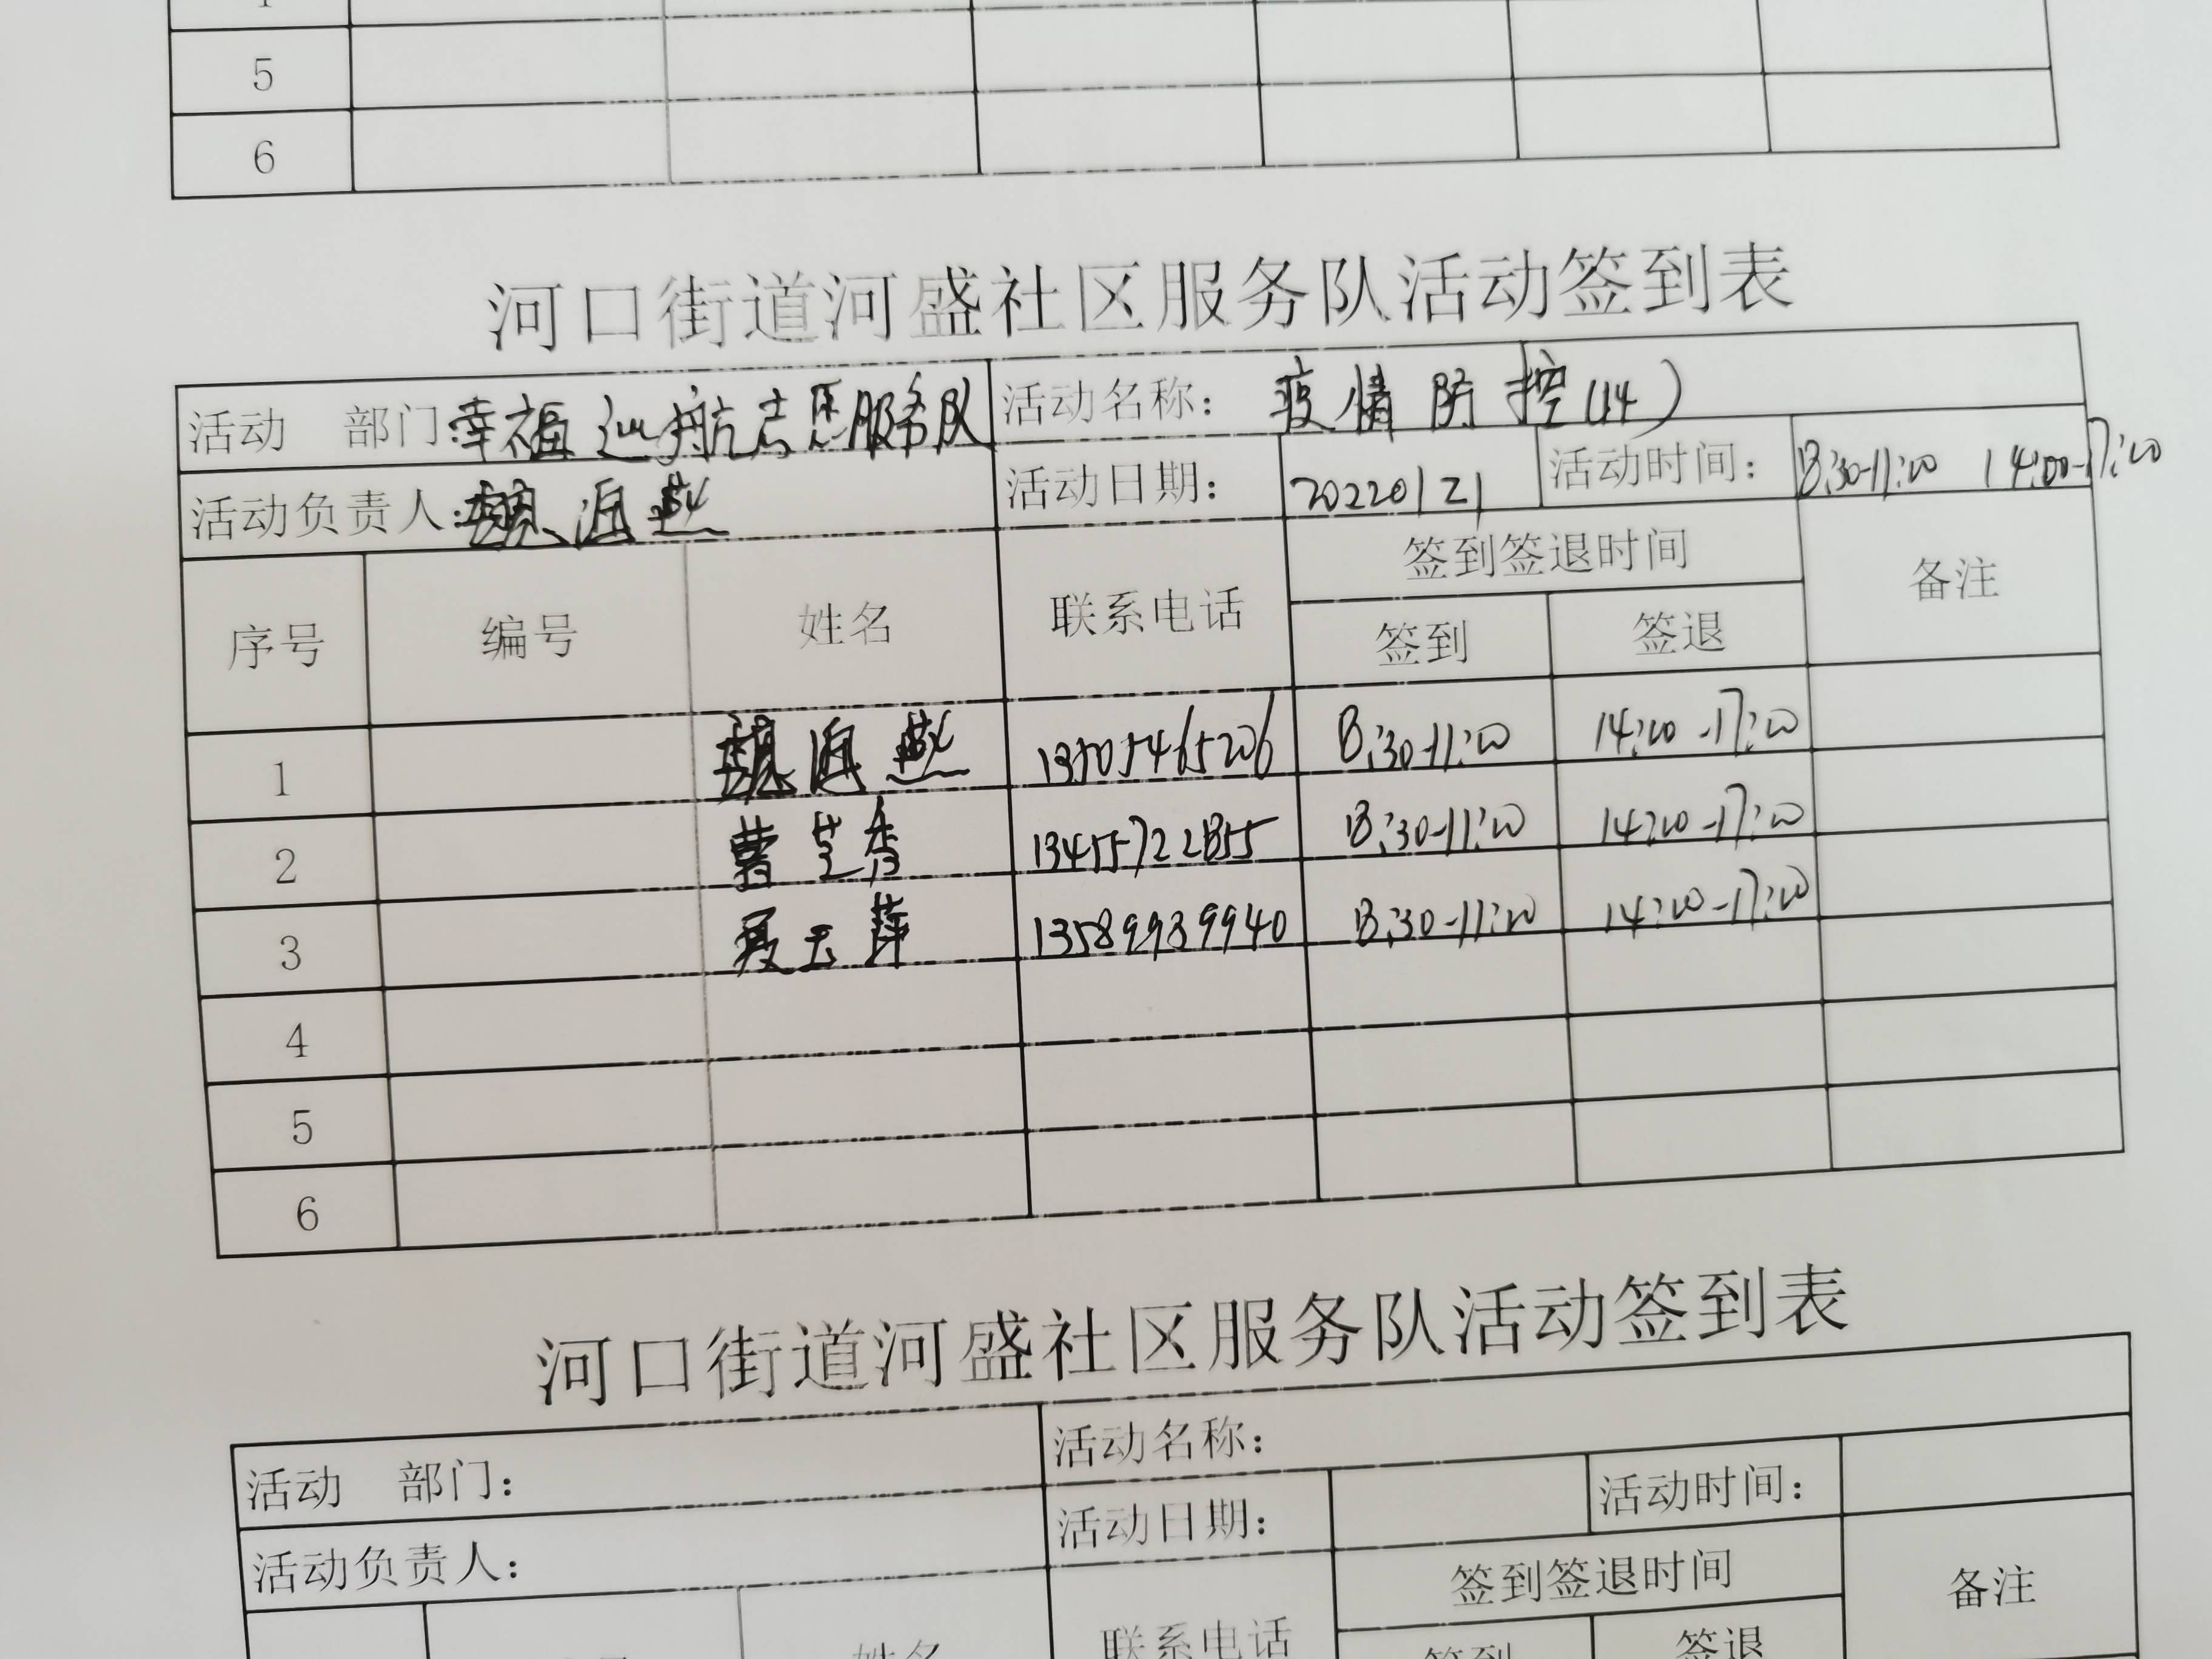 5
6
河口街道河盛社区服务队活动签到表
活动 部门:幸福巡航志愿服务队 活动名称: 疫情防控(14)
活动负责人: 魏海燕 活动日期: 20220121 活动时间: 8:30-11:00 14:00-17:00
序号 编号 姓名 联系电话 签到签退时间 备注
签到 签退
1 魏海燕 13505465206 8:30-11:00 14:00-17:00
2 曹芝秀 13455722855 8:30-11:00 14:00-17:00
3 聂云萍 13589989940 8:30-11:00 14:00-17:00
4
5
6
河口街道河盛社区服务队活动签到表
活动 部门: 活动名称:
活动负责人: 活动日期: 活动时间:
姓名 联系电话 签到签退时间 备注
签到 签退